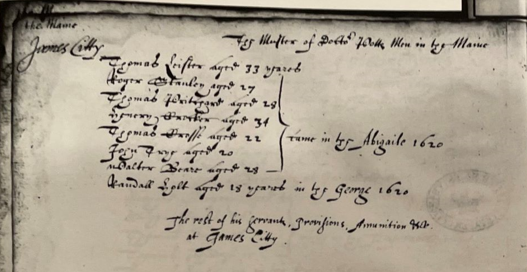 the Maine
James Citty
The Muster of Doctor Potts Men in the Maine
Thomas Leister aged 33 yeares
Roger Stanley aged 27
Thomas Pritchard aged 28
Henery Crocker aged 34
Thomas Crosse aged 22
John Trye aged 20
Walter Beare aged 28
came in the Abigaile 1620
Randall Holt aged 18 yeares in the George 1620
The rest of his servants, Provisions, Amunition &c.
at James Citty.